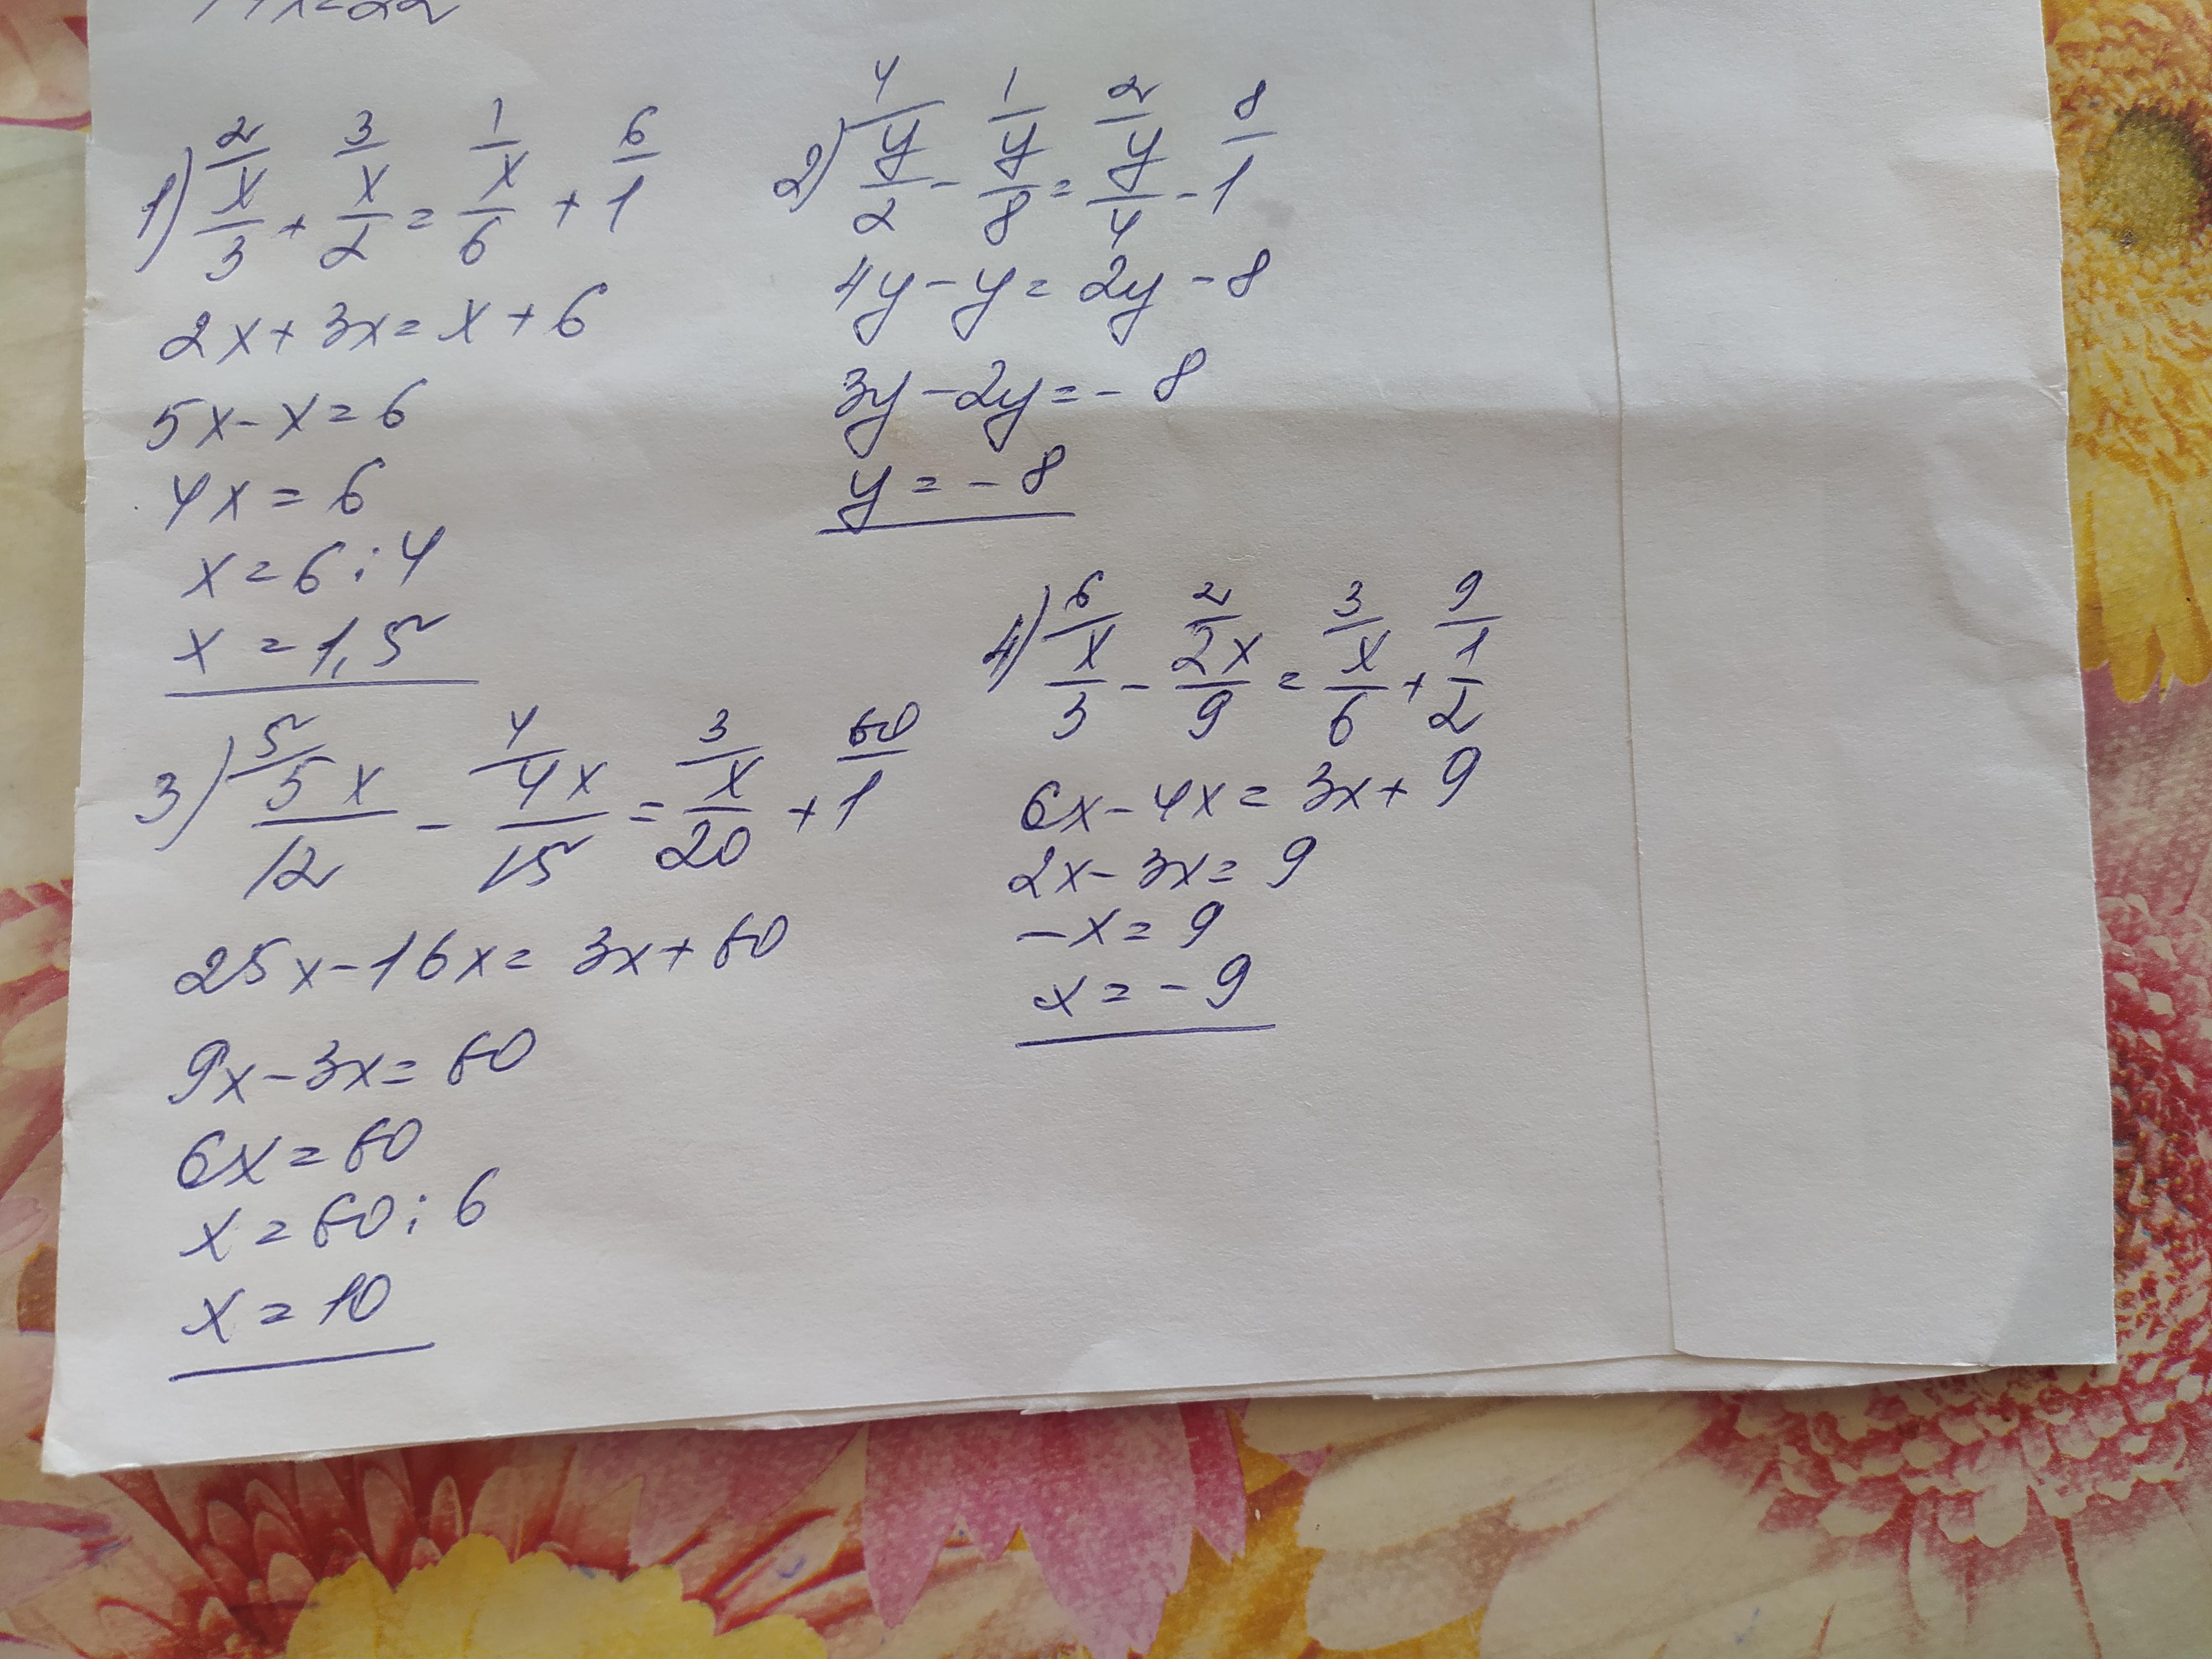 x=22
2 3 1 6
1) x/3 + x/2 = x/6 + 1
2x+3x=x+6
5x-x=6
4x=6
x=6:4
x=1,5
4 1 2 8
2) y/2 - y/8 = y/4 - 1
4y-y=2y-8
3y-2y=-8
y=-8
5 4 3 60
3) 5x/12 - 4x/15 = x/20 + 1
25x-16x=3x+60
9x-3x=60
6x=60
x=60:6
x=10
6 2 3 9
4) x/3 - 2x/9 = x/6 + 1/2
6x-4x=3x+9
2x-3x=9
-x=9
x=-9